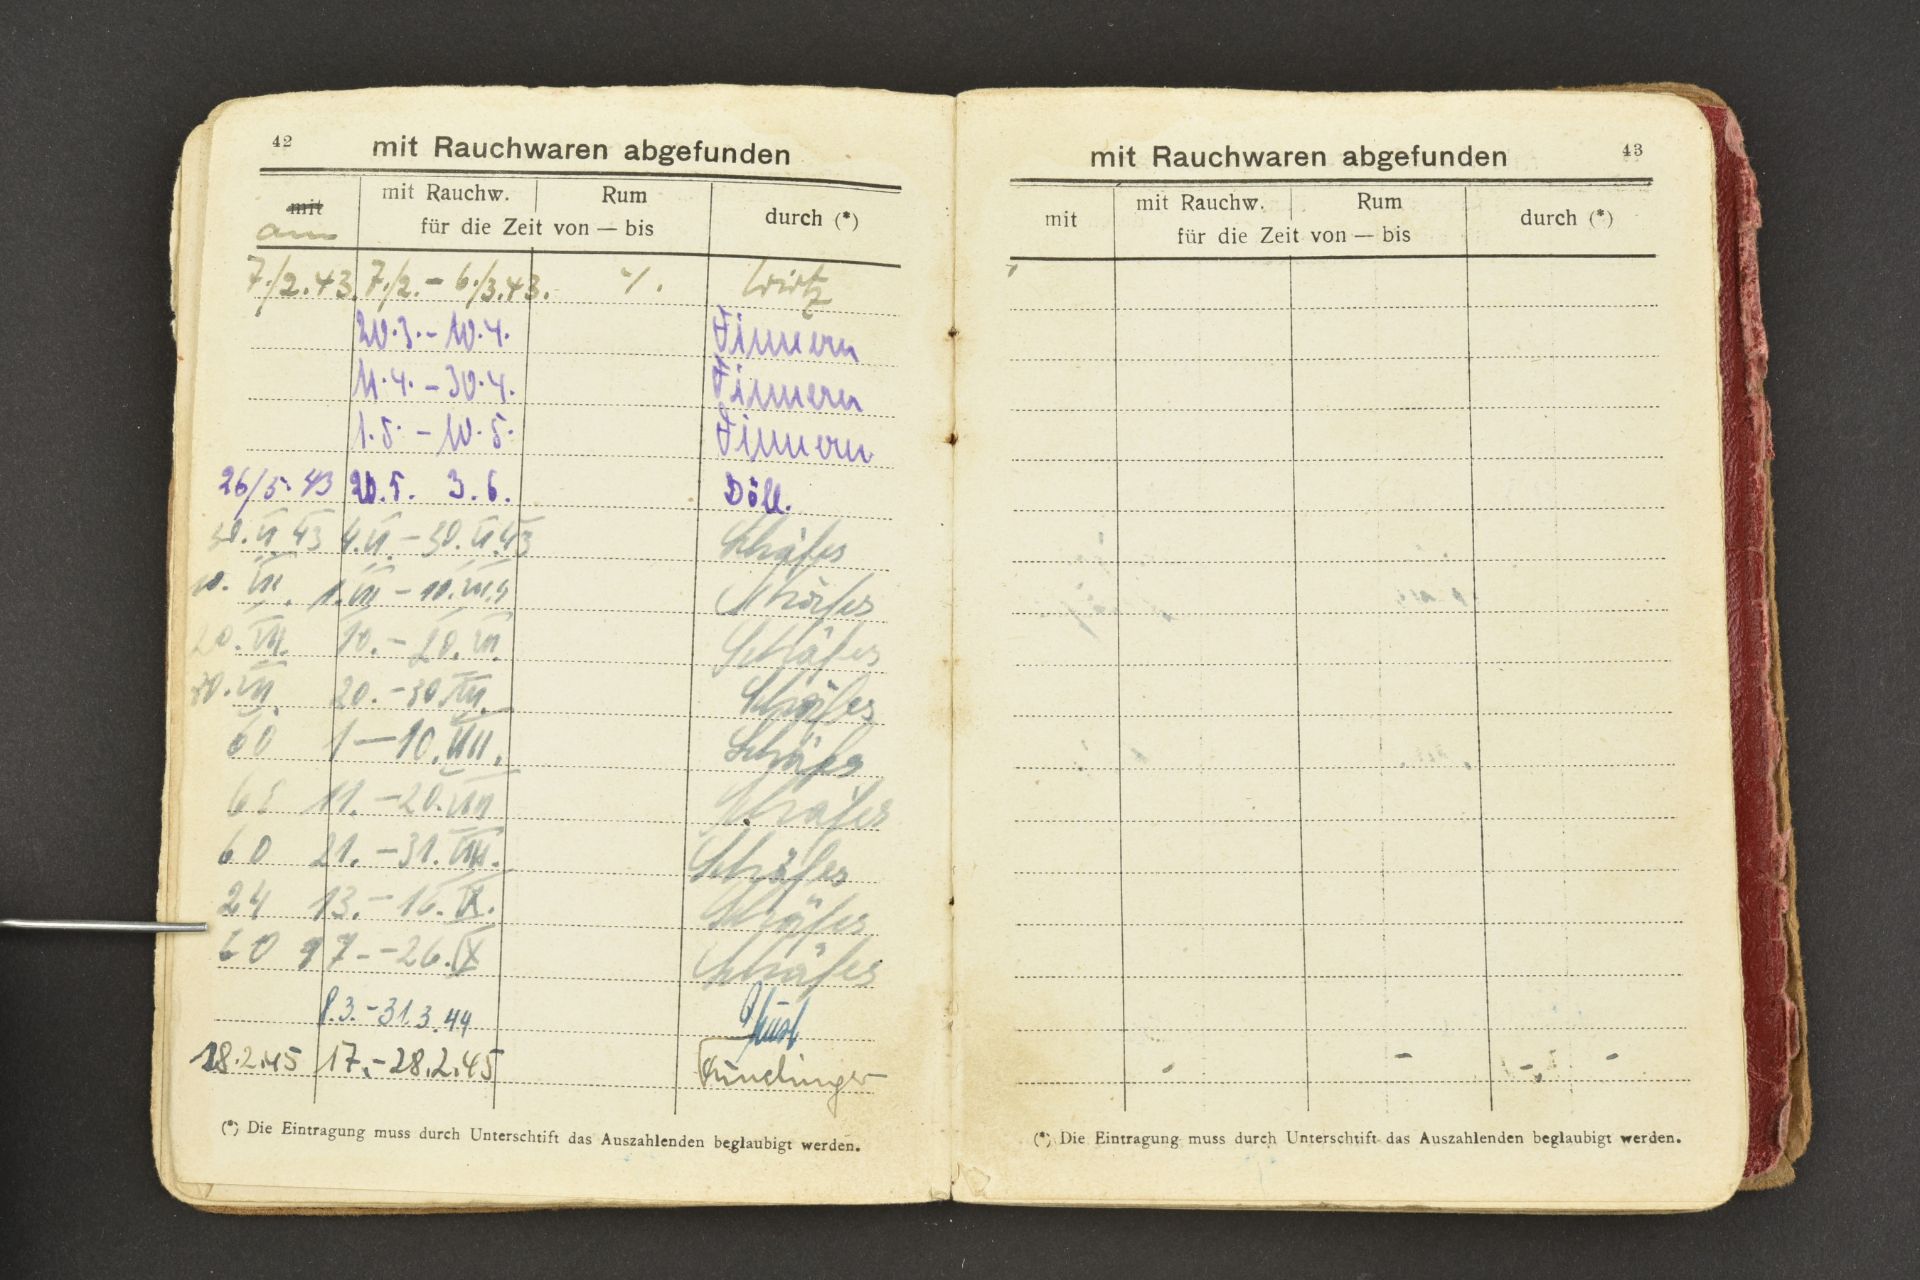 42
mit Rauchwaren abgefunden
mit Rauchw. Rum
mit
am
für die Zeit von — bis
durch (*)
7./2.43. 7./2. - 6./3.43. ·/. Wirtz
20.3. - 10.4. Finnern
11.4. - 30.4. Finnern
1.5. - 10.5. Finnern
26/5.43 20.5. 3.6. Döll.
30.VI 43 4.VI. - 30.VI.43 Schäfer
10.VII. 1.VII - 10.VII. Schäfer
20.VII. 10. - 20.VII. Schäfer
30.VII. 20. - 30.VII. Schäfer
60 1 — 10.VIII. Schäfer
11. - 20.VIII Schäfer
60 21. - 31.VIII. Schäfer
24 13. - 16.IX. Schäfer
60 17. - 26.IX Schäfer
8.3. - 31.3.44
28.2.45 17. - 28.2.45
(*) Die Eintragung muss durch Unterschtift das Auszahlenden beglaubigt werden.
mit Rauchwaren abgefunden
43
mit Rauchw. Rum
mit
für die Zeit von — bis
durch (*)
(*) Die Eintragung muss durch Unterschtift das Auszahlenden beglaubigt werden.